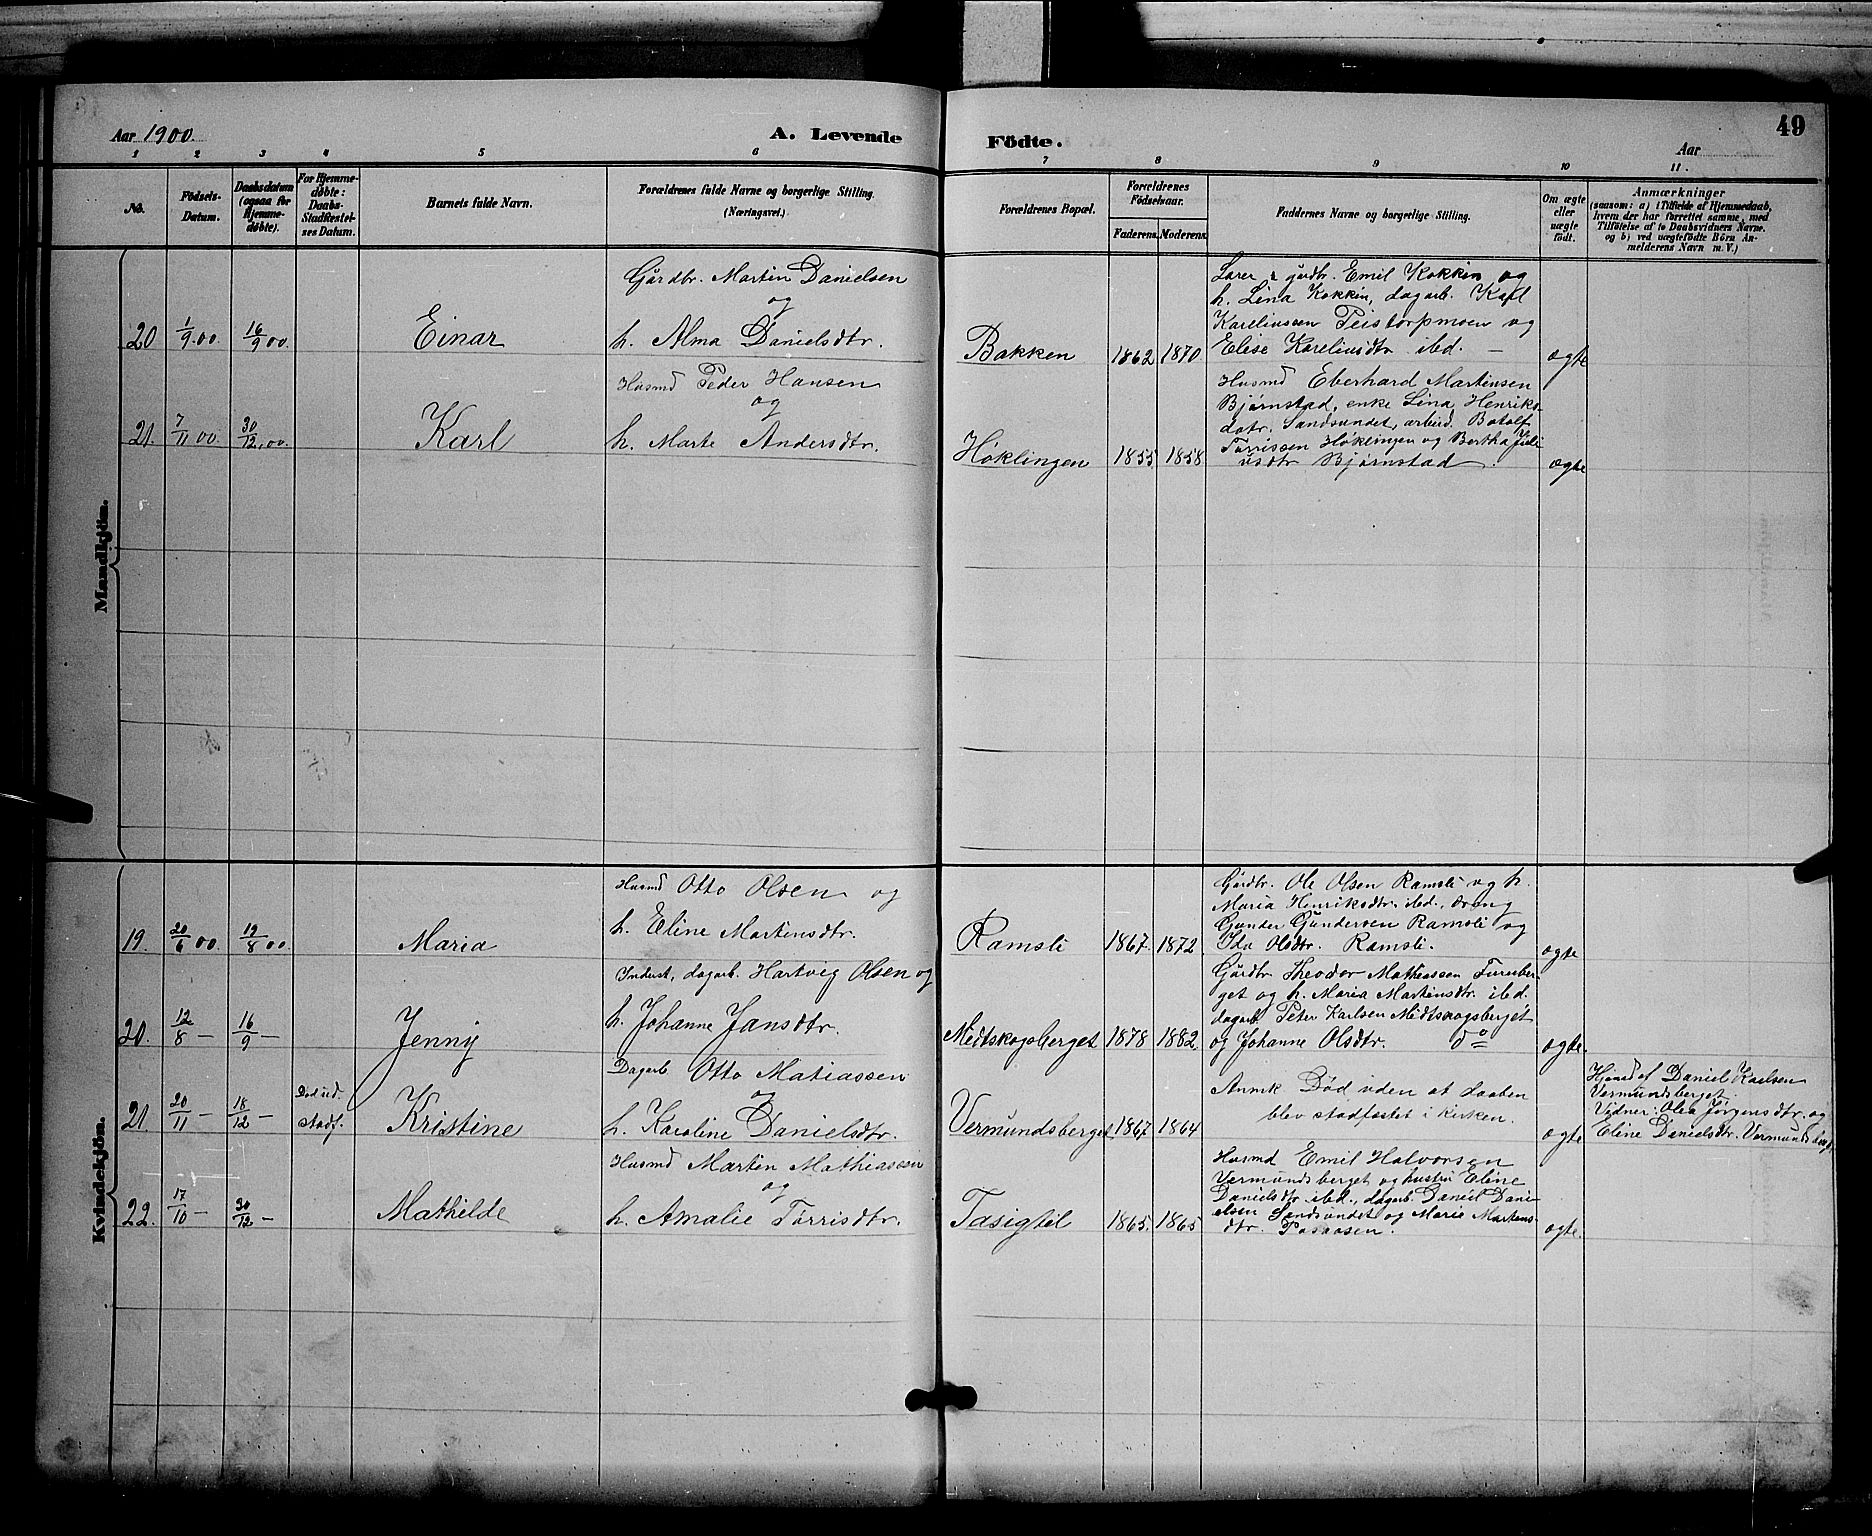 Aar 1900.
A. Levende
Födte.
49
Aar
1 2 3 4 5 6 7 8 9 10 11.
No.
Födsels-
Datum.
Daabsdatum
(ogsaa for
Hjemme-
döbte).
For Hjemme-
döbte:
Daabs-
Stadfæstel-
ses Datum.
Barnets fulde Navn.
Forældrenes fulde Navne og borgerlige Stilling.
(Næringsvei.)
Forældrenes Bopæl.
Forældrenes
Födselsaar.
Faderens.
Moderens.
Faddernes Navne og borgerlige Stilling.
Om ægte
eller
uægte
födt.
Anmærkninger
(saasom: a) i Tilfælde af Hjemmedaab,
hvem der har forrettet samme, med
Tilföielse af to Daabsvidners Navne.
og b) ved uægtefödte Börn An-
melderens Navn m. V.)
Mandkjön.
20 1/9.00. 16/9 00. Einar
Gårdbr. Martin Danielsen
og
h. Alma Danielsdtr.
Bakken 1862 1870
Lærer & gårdbr. Emil Kokkin og
h. Lina Kokkin, dagarb. Karl
Kareliussen Peistorpmoen og
Elise Kareliusdtr. ibd. —
ægte
21. 7/11 00. 30/12.00. Karl
Husmd Peder Hansen
og
h. Marte Andersdtr.
Høklingen 1855 1858
Husmd Eberhard Martinsen
Bjørnstad, enke Lina Henriks-
datr. Sandsundet, arbeid. Botolf
Tørrissen Høklingen og Bertha Juli
usdtr Bjørnstad.
ægte
Kvindekjön.
19. 20/6 00. 19/8 00. Maria
Husmd Otto Olsen og
h. Eline Martinsdtr.
Ramsli 1867. 1872
Gårdbr. Ole Olsen Ramsli og h.
Maria Henriksdtr. ibd., dreng
Gunder Gundersen Ramsli og
Ida Olsdtr. Ramsli.
ægte
20. 12/8 — 16/9 — Jenny
Inderst, dagarb. Hartvig Olsen og
h. Johanne Jansdtr.
Medtskogsberget 1878 1882
Gårdbr. Theodor Mathiassen Furuber-
get og h. Maria Martinsdtr. ibd.
dagarb. Peter Karlsen Medtskogsberget
og Johanne Olsdtr. do =
ægte.
21. 20/11 — 18/12 — Død ud.
Stadf. Kristine
Dagarb. Otto Matiassen
og
h. Karoline Danielsdtr.
Vermundsberget 1867 1864
Anmk Død uden at daaben
blev stadfæstet i kirken.
ægte
Hjemd af Daniel Karlsen
Vermundsberget.
Vidner: Olea Jørgensdtr. og
Eline Danielsdtr. Vermundsberg.
22. 17/10 — 30/12 — Mathilde
Husmd Martin Mathiassen
og
h. Amalie Tørrisdtr.
Tasigtil 1865. 1865
Husmd Emil Halvorsen
Vermundsberget og hustru Eline
Danielsdtr ibd., dagarb. Daniel Dani-
elsen Sandsundet og Marie Martens-
dtr. Posaasen.
ægte.